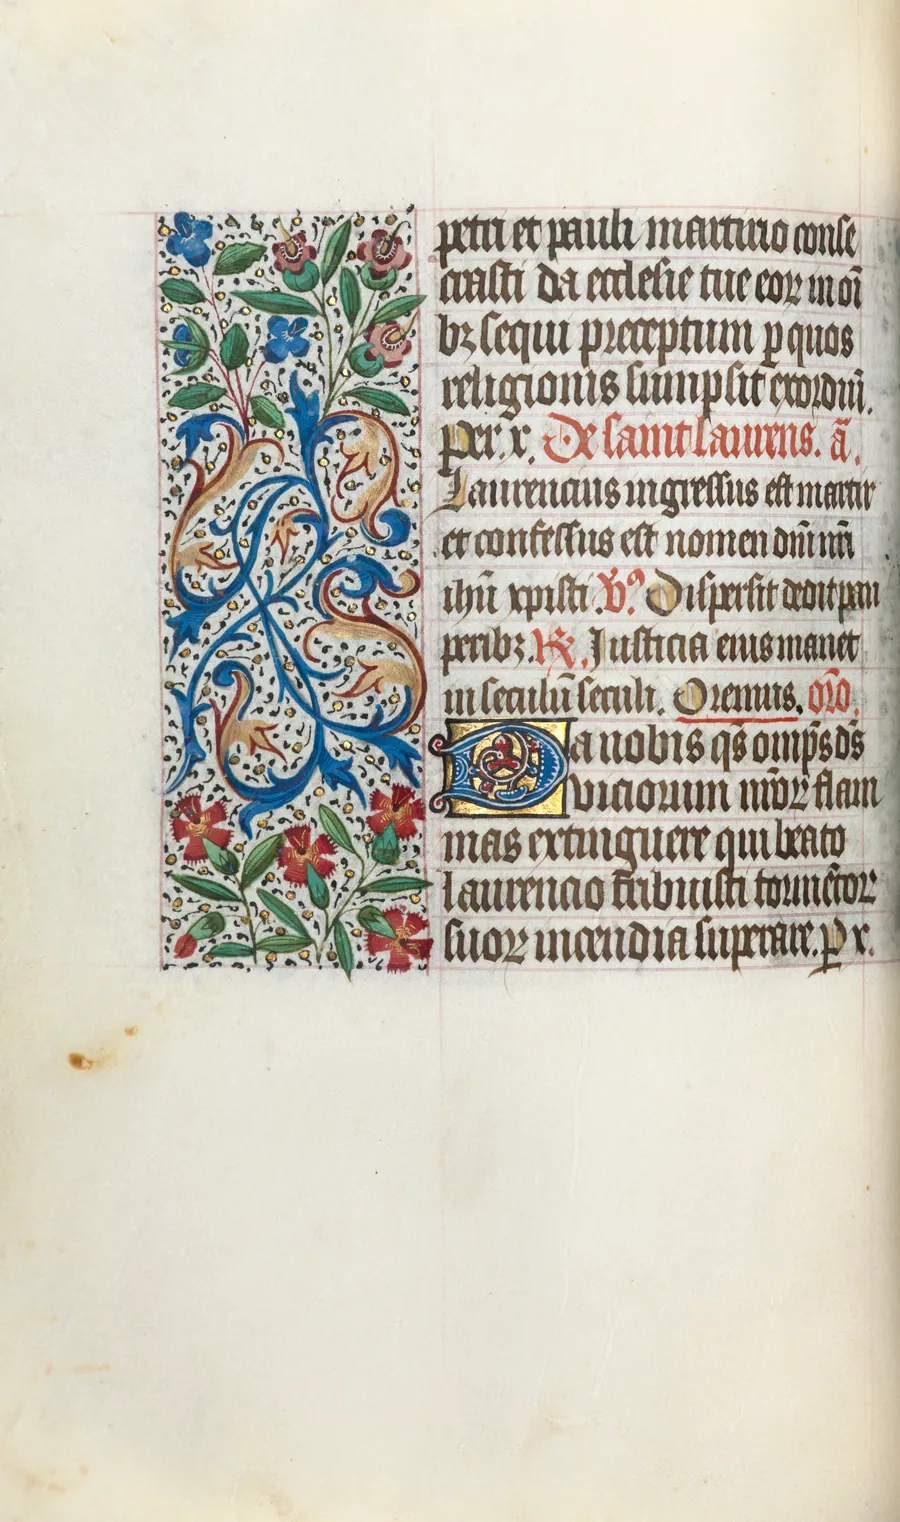 petri et pauli martirio conse
crasti da ecclesie tue eoꝝ in oı̄
bꝫ sequi preceptum ꝑ quos
religionis sumpsit exordiū.
Per. x. De saint laurens. ā.
Laurencius ingressus est martir
et confessus est nomen dn̄i nr̄i
ihū xpisti. v̉ꝰ Dispersit dedit pau
peribꝫ. ℟x. Justicia eius manet
in seculū seculi. Oremus. or̄o.
Da nobis qs̄ omp̄s ds̄
viciorum nr̄oꝝ flam
mas extinguere qui beato
laurencio tribuisti tormētoꝝ
suoꝝ incendia superare. ꝑ x.